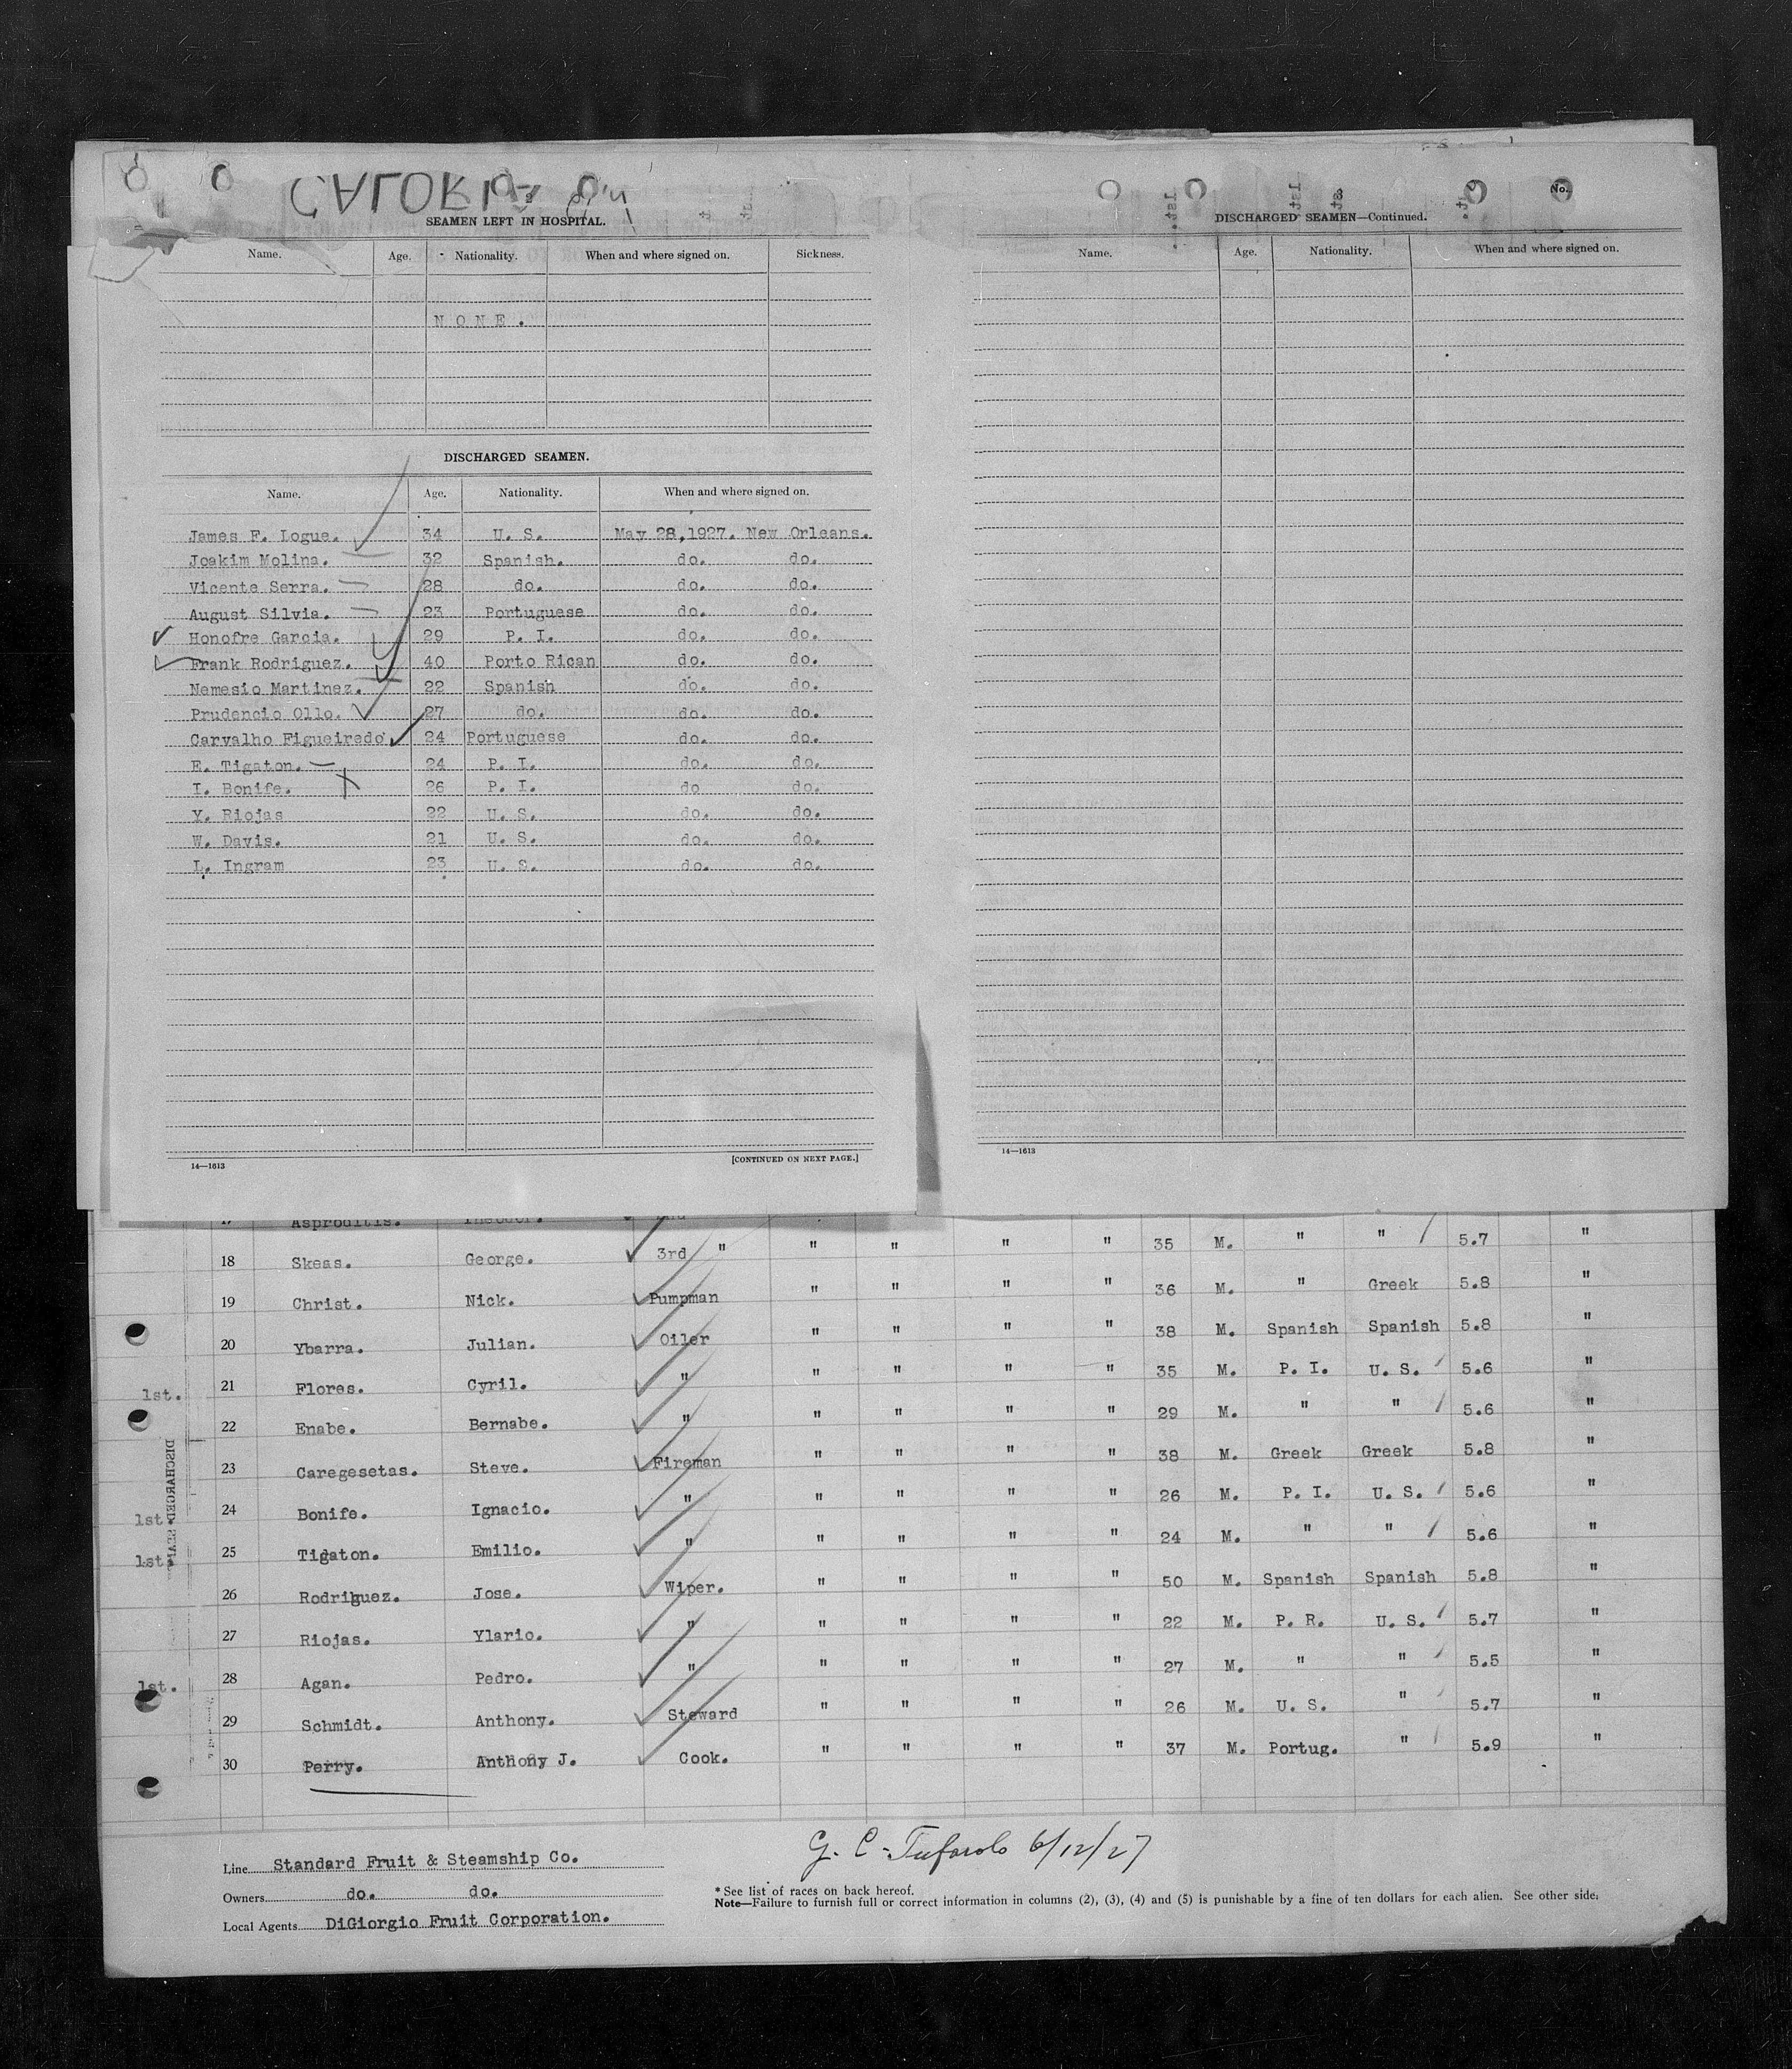 SEAMEN LEFT IN HOSPITAL.
Name. Age. Nationality. When and where signed on. Sickness.
NONE.
DISCHARGED SEAMEN.
Name. Age. Nationality. When and where signed on.
James F. Logue. 34 U. S. May 28,1927. New Orleans.
Joakim Molina. 32 Spanish. do. do.
Vicente Serra. 28 do. do. do.
August Silvia. 23 Portuguese do. do.
Honofre Garcia. 29 P. I. do. do.
Frank Rodriguez. 40 Porto Rican do. do.
Nemesio Martinez. 22 Spanish do. do.
Prudencio Ollo. 27 do. do. do.
Carvalho Figueiredo 24 Portuguese do. do.
E. Tigaton. 24 P. I. do. do.
I. Bonife. 26 P. I. do do.
Y. Riojas 22 U. S. do. do.
W. Davis. 21 U. S. do. do.
L. Ingram 23 U. S. do. do.
14—1613 [CONTINUED ON NEXT PAGE.]
No.
DISCHARGED SEAMEN—Continued.
Name. Age. Nationality. When and where signed on.
14—1613
17 Asproditis. Theodor.
18 Skeas. George. 3rd " " " " " 35 M. " " 5.7 "
19 Christ. Nick. Pumpman " " " " 36 M. " Greek 5.8 "
20 Ybarra. Julian. Oiler " " " " 38 M. Spanish Spanish 5.8 "
1st. 21 Flores. Cyril. " " " " " 35 M. P. I. U. S. 5.6 "
22 Enabe. Bernabe. " " " " " 29 M. " " 5.6 "
23 Caregesetas. Steve. Fireman " " " " 38 M. Greek Greek 5.8 "
1st. 24 Bonife. Ignacio. " " " " " 26 M. P. I. U. S. 5.6 "
1st. 25 Tigaton. Emilio. " " " " " 24 M. " " 5.6 "
26 Rodriguez. Jose. Wiper. " " " " 50 M. Spanish Spanish 5.8 "
27 Riojas. Ylario. " " " " " 22 M. P. R. U. S. 5.7 "
1st. 28 Agan. Pedro. " " " " " 27 M. " " 5.5 "
29 Schmidt. Anthony. Steward " " " " 26 M. U. S. " 5.7 "
30 Perry. Anthony J. Cook. " " " " 37 M. Portug. " 5.9 "
Line Standard Fruit & Steamship Co.
Owners do. do.
Local Agents DiGiorgio Fruit Corporation.
G. C. 6/12/27
* See list of races on back hereof.
Note—Failure to furnish full or correct information in columns (2), (3), (4) and (5) is punishable by a fine of ten dollars for each alien. See other side.